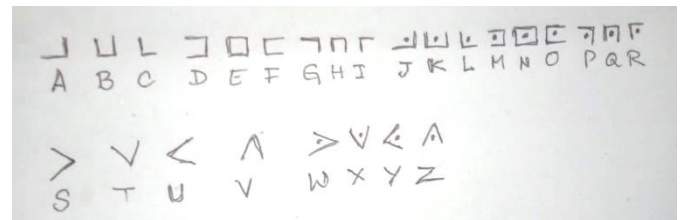 A B C D E F G H I J K L M N O P Q R
S T U V W X Y Z